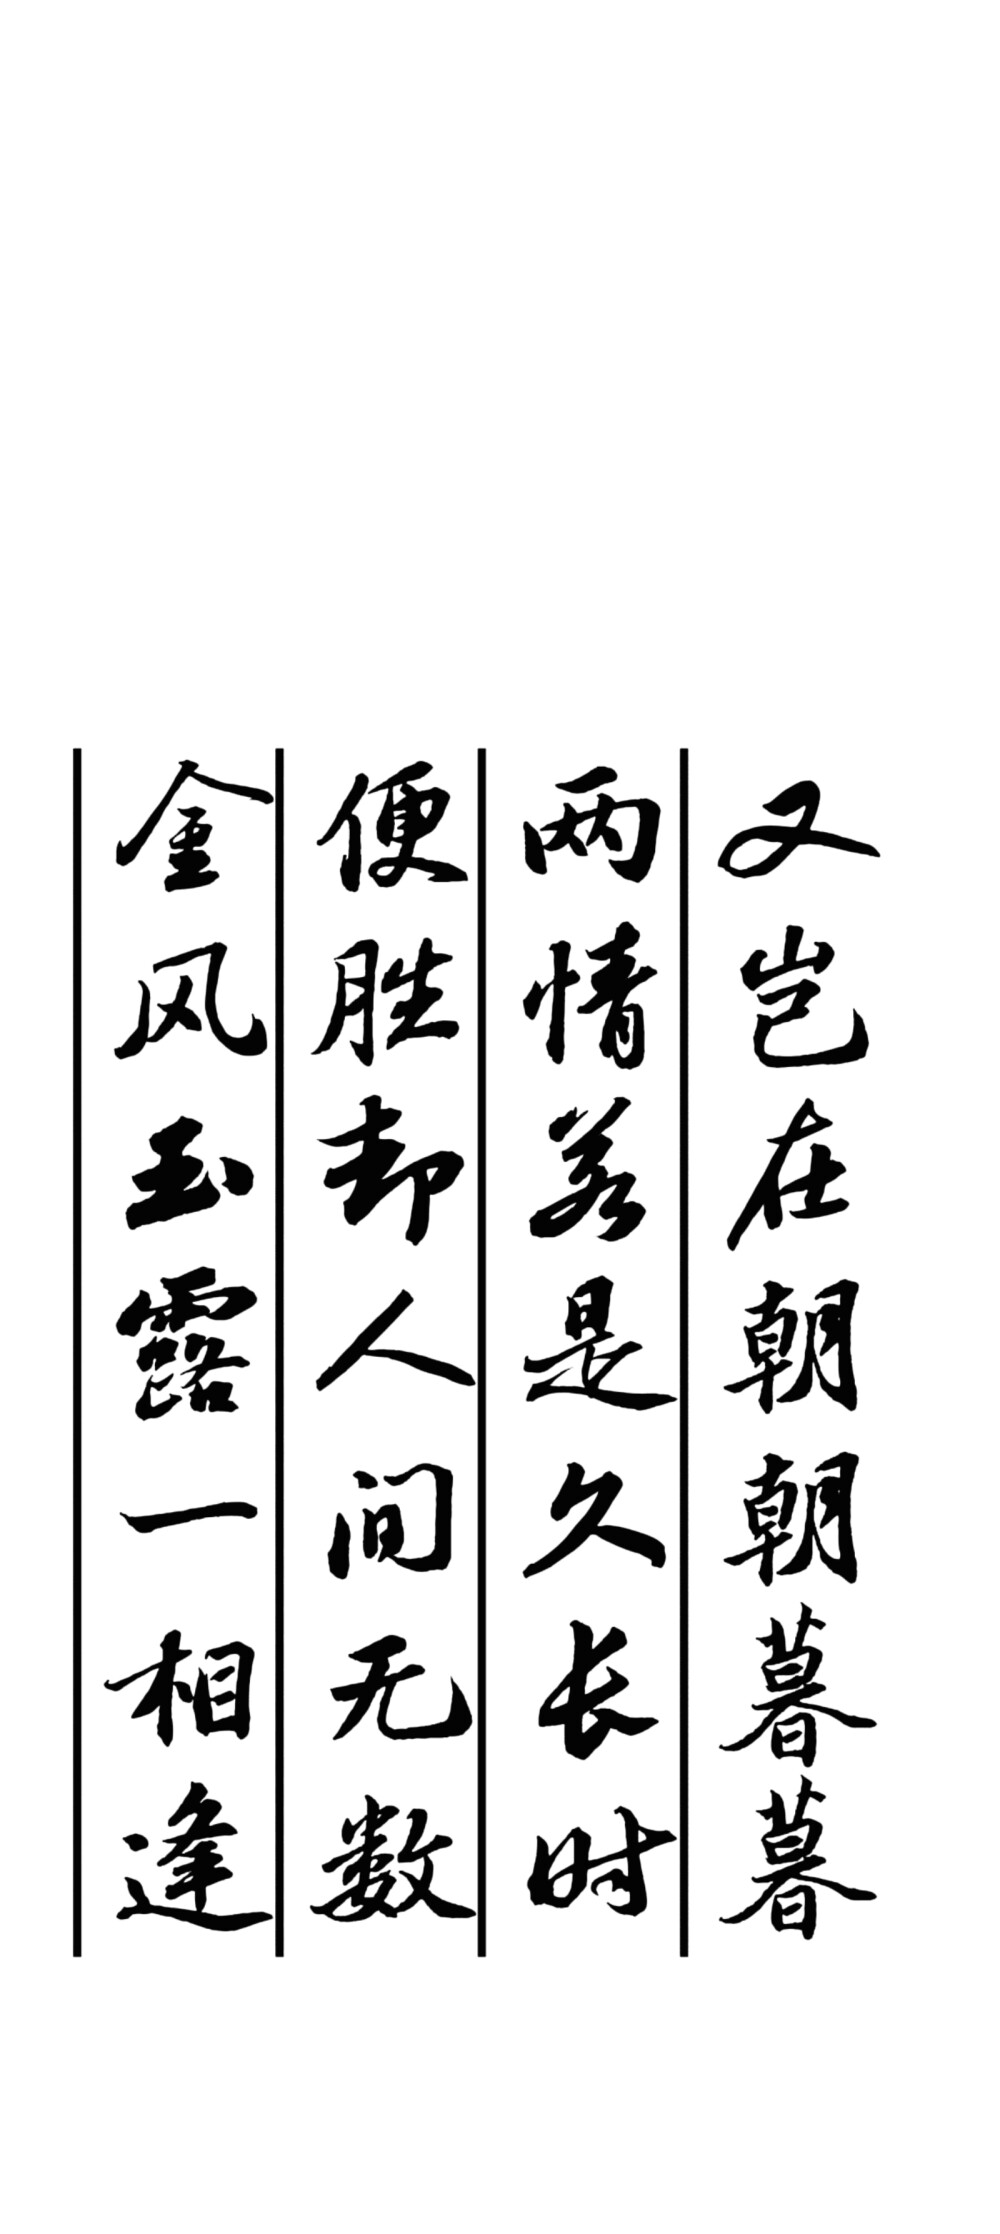 金风玉露一相逢
便胜却人间无数
两情若是久长时
又岂在朝朝暮暮